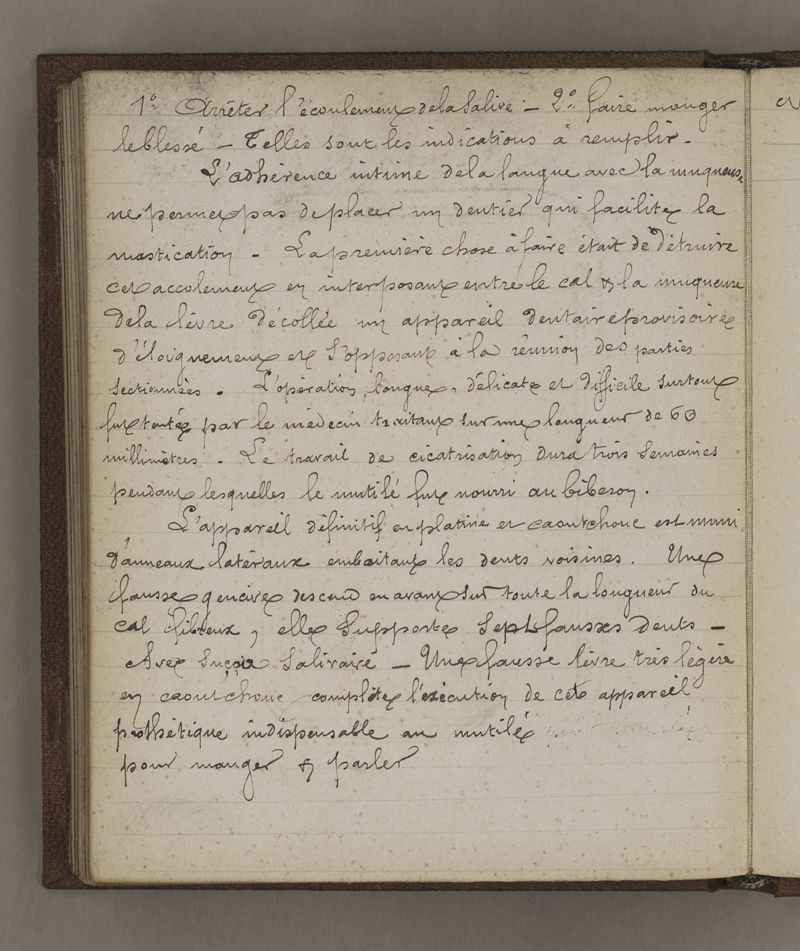 1° Arrêter l'écoulement de la Salive – 2° faire manger
le blessé – Telles sont les indications à remplir –
L'adhérence intime de la langue avec la muqueuse
ne permet pas de placer un dentier qui facilite la
mastication – La première chose à faire était de détruire
cet accolement en interposant entre le cal & la muqueuse
de la lèvre décollée un appareil dentaire provisoire
d'éloignement et s'opposant à la réunion des parties
sectionnées. L'opération, longue, délicate et difficile surtout
fut tentée par le médecin traitant sur une longueur de 60
millimètres. Le travail de cicatrisation dura trois Semaines
pendant lesquelles le mutilé fut nourri au biberon.
L'appareil définitif en platine et caoutchouc est muni
d'anneaux latéraux emboitant les dents voisines. Une
fausse gencive descend en avant sur toute la longueur du
cal fibreux, elle Supporte Sept fausses dents –
Avec Suçoir Salivaire – Une fausse lèvre très légère
en caoutchouc complète l'exécution de cet appareil
prothétique indispensable au mutilé
pour manger & parler